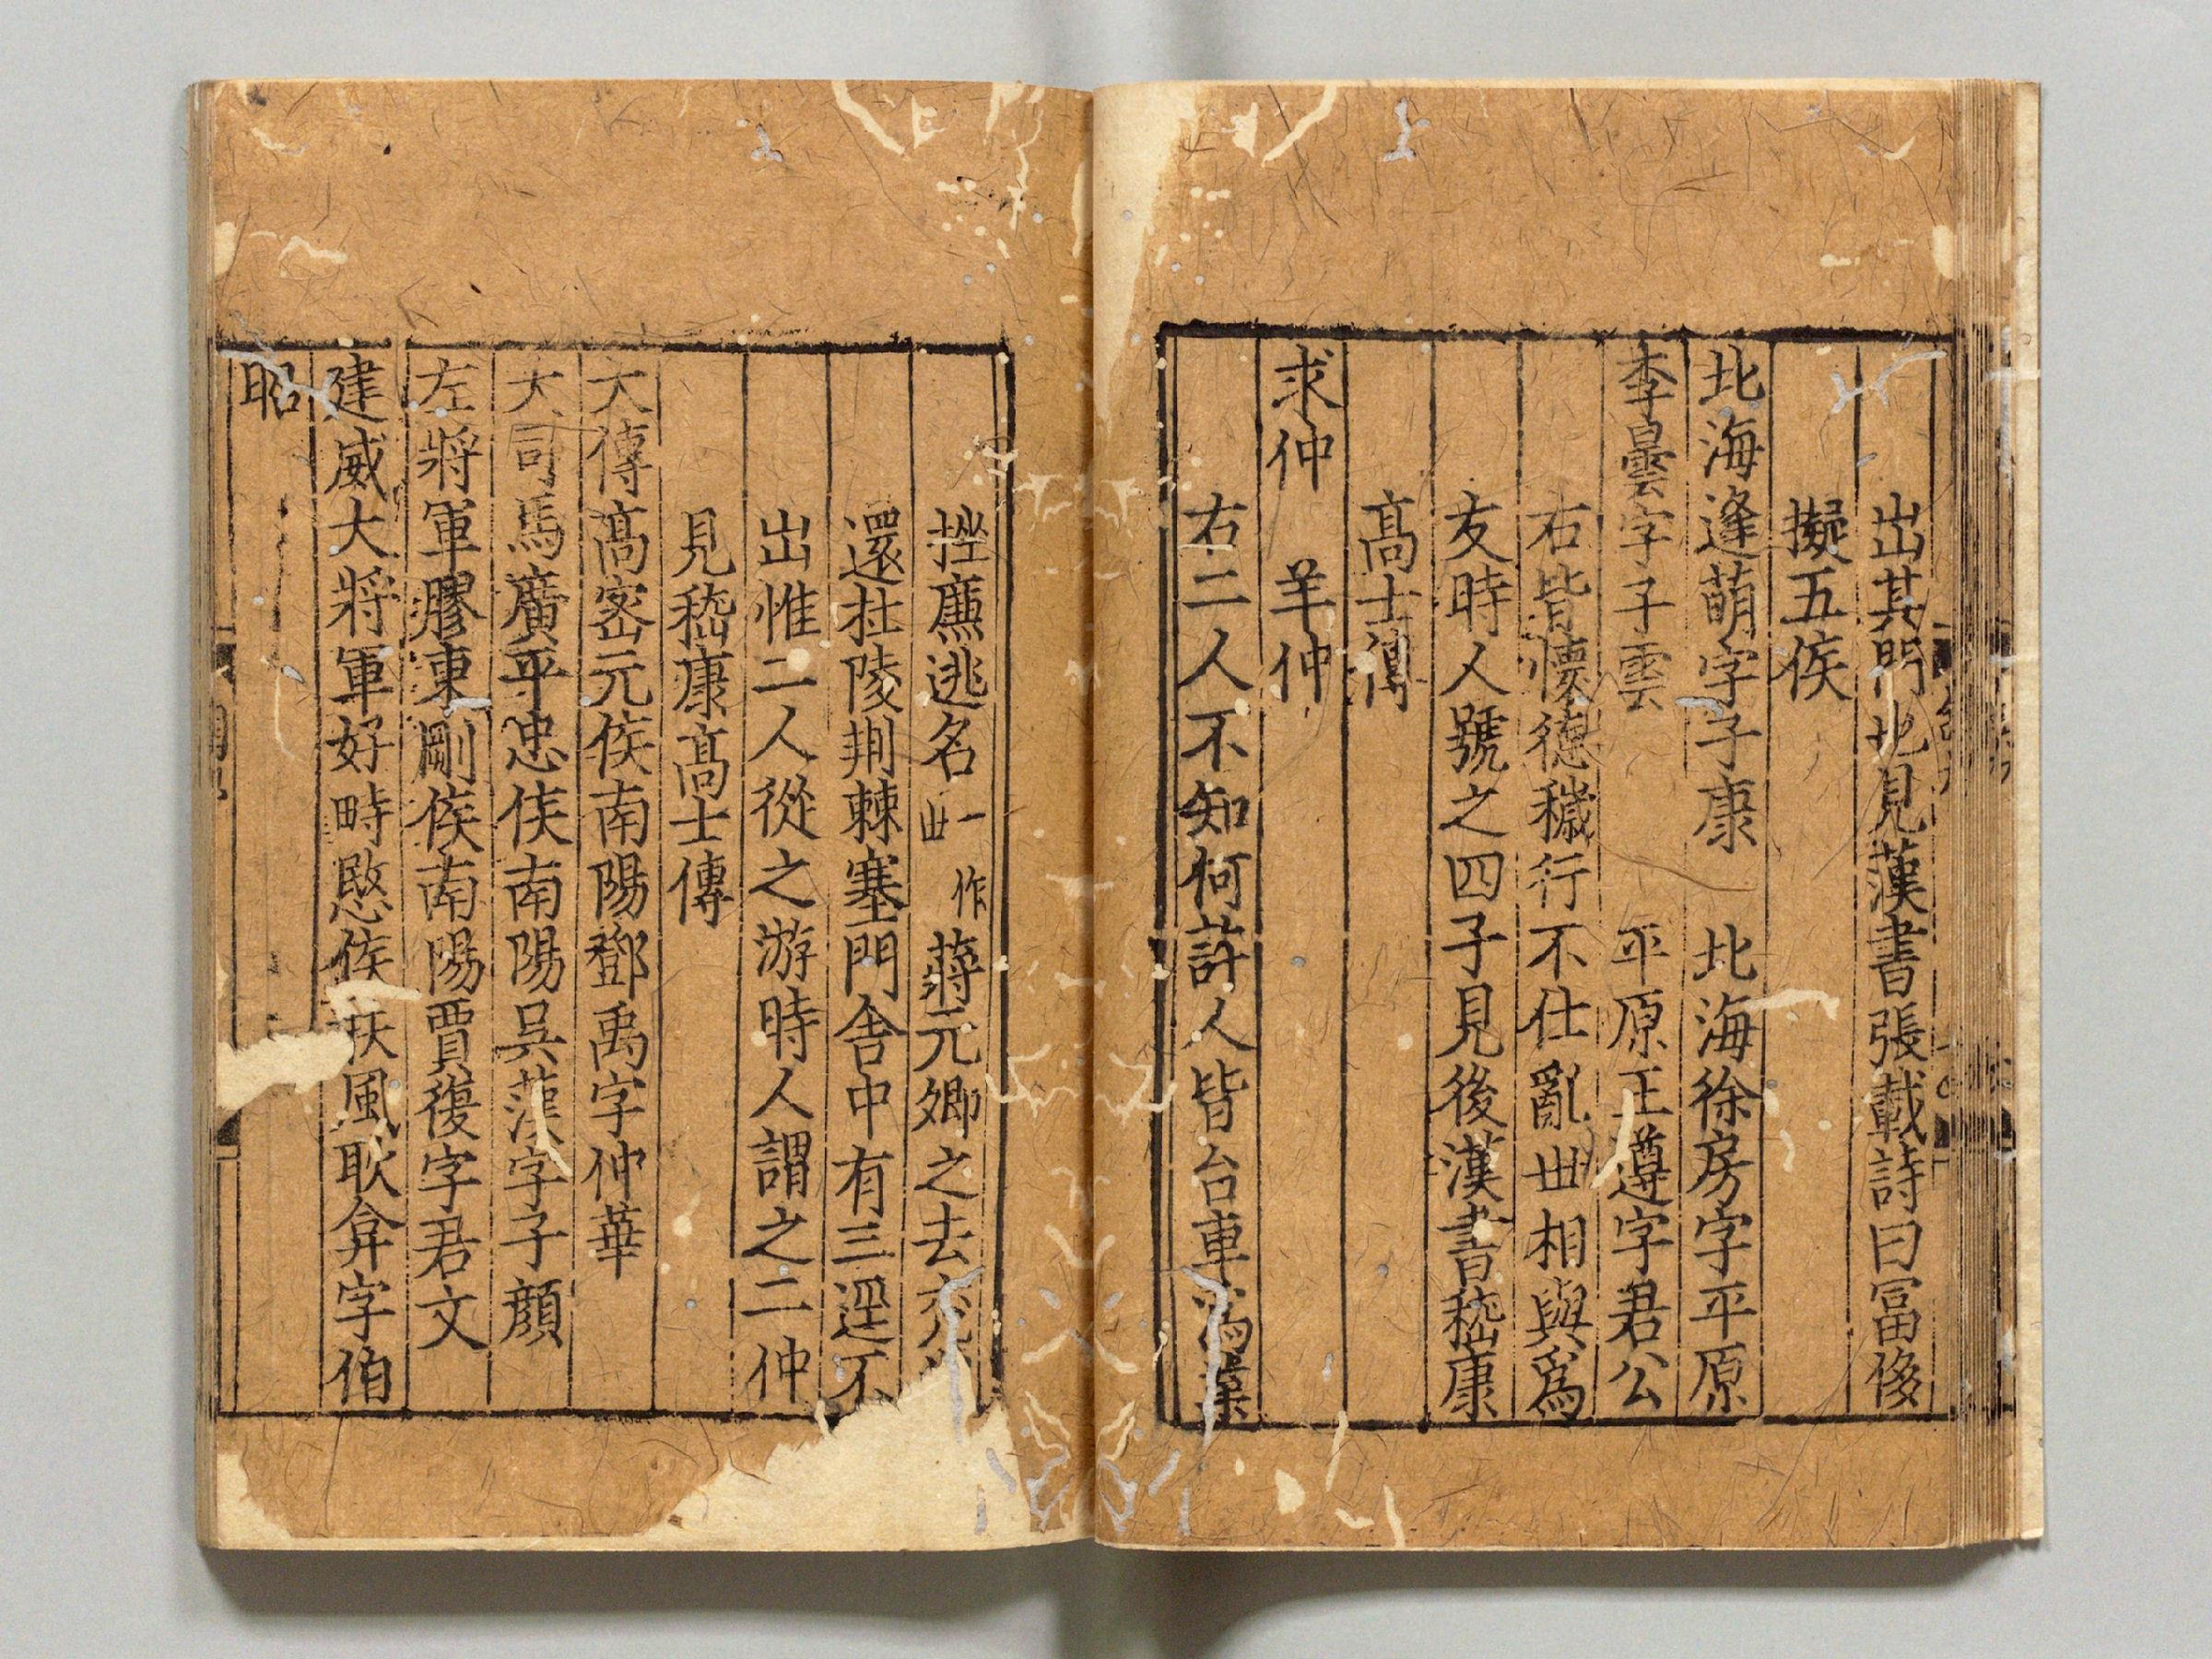 出其門也見漢書張載詩曰冨侈
擬五侯
北海逢萌字子康　北海徐房字平原
李曇字子雲　平原王遵字君公
右皆懷德穢行不仕亂世相與爲
友時人號之四子見後漢書嵇康
髙士傳
求仲　羊仲
右二人不知何許人皆治車爲業
挫廉逃名
一作
世
蔣元卿之去兖
還杜陵荆棘塞門舎中有三逕不
出惟二人從之游時人謂之二仲
見嵇康髙士傳
太傅髙宻元侯南陽鄧禹字仲華
大司馬廣平忠侯南陽呉漢字子顔
左將軍膠東剛侯南陽賈復字君文
建威大將軍好畤愍侯扶風耿弇字伯
昭